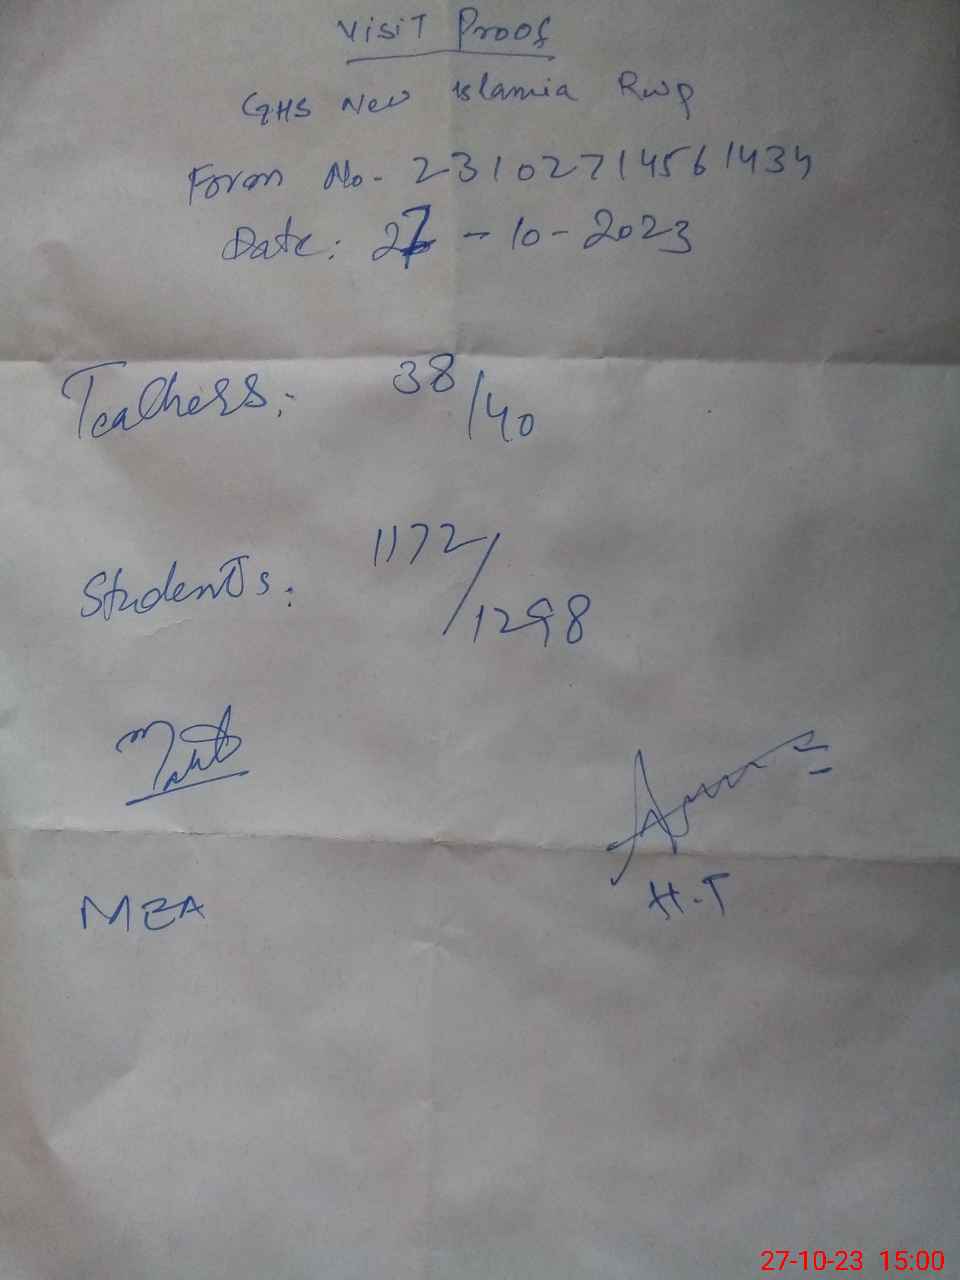 Visit Proof
GHS New Islamia Rwp
Form No. 23102714561434
Date: 27-10-2023
Teachers: 38/40
Students: 1172/1298
MEA
H.T
27-10-23 15:00